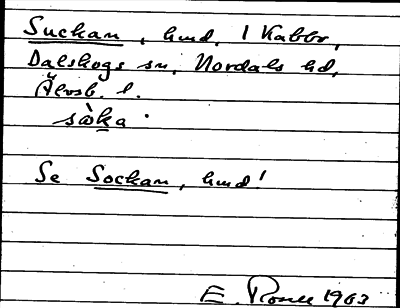 Suckan, hmd, 1 Kabbr,
Dalskogs sn, Nordals hd,
Älvsb. l.
sòka.
Se Sockan, hmd!
E. Rosell 1963